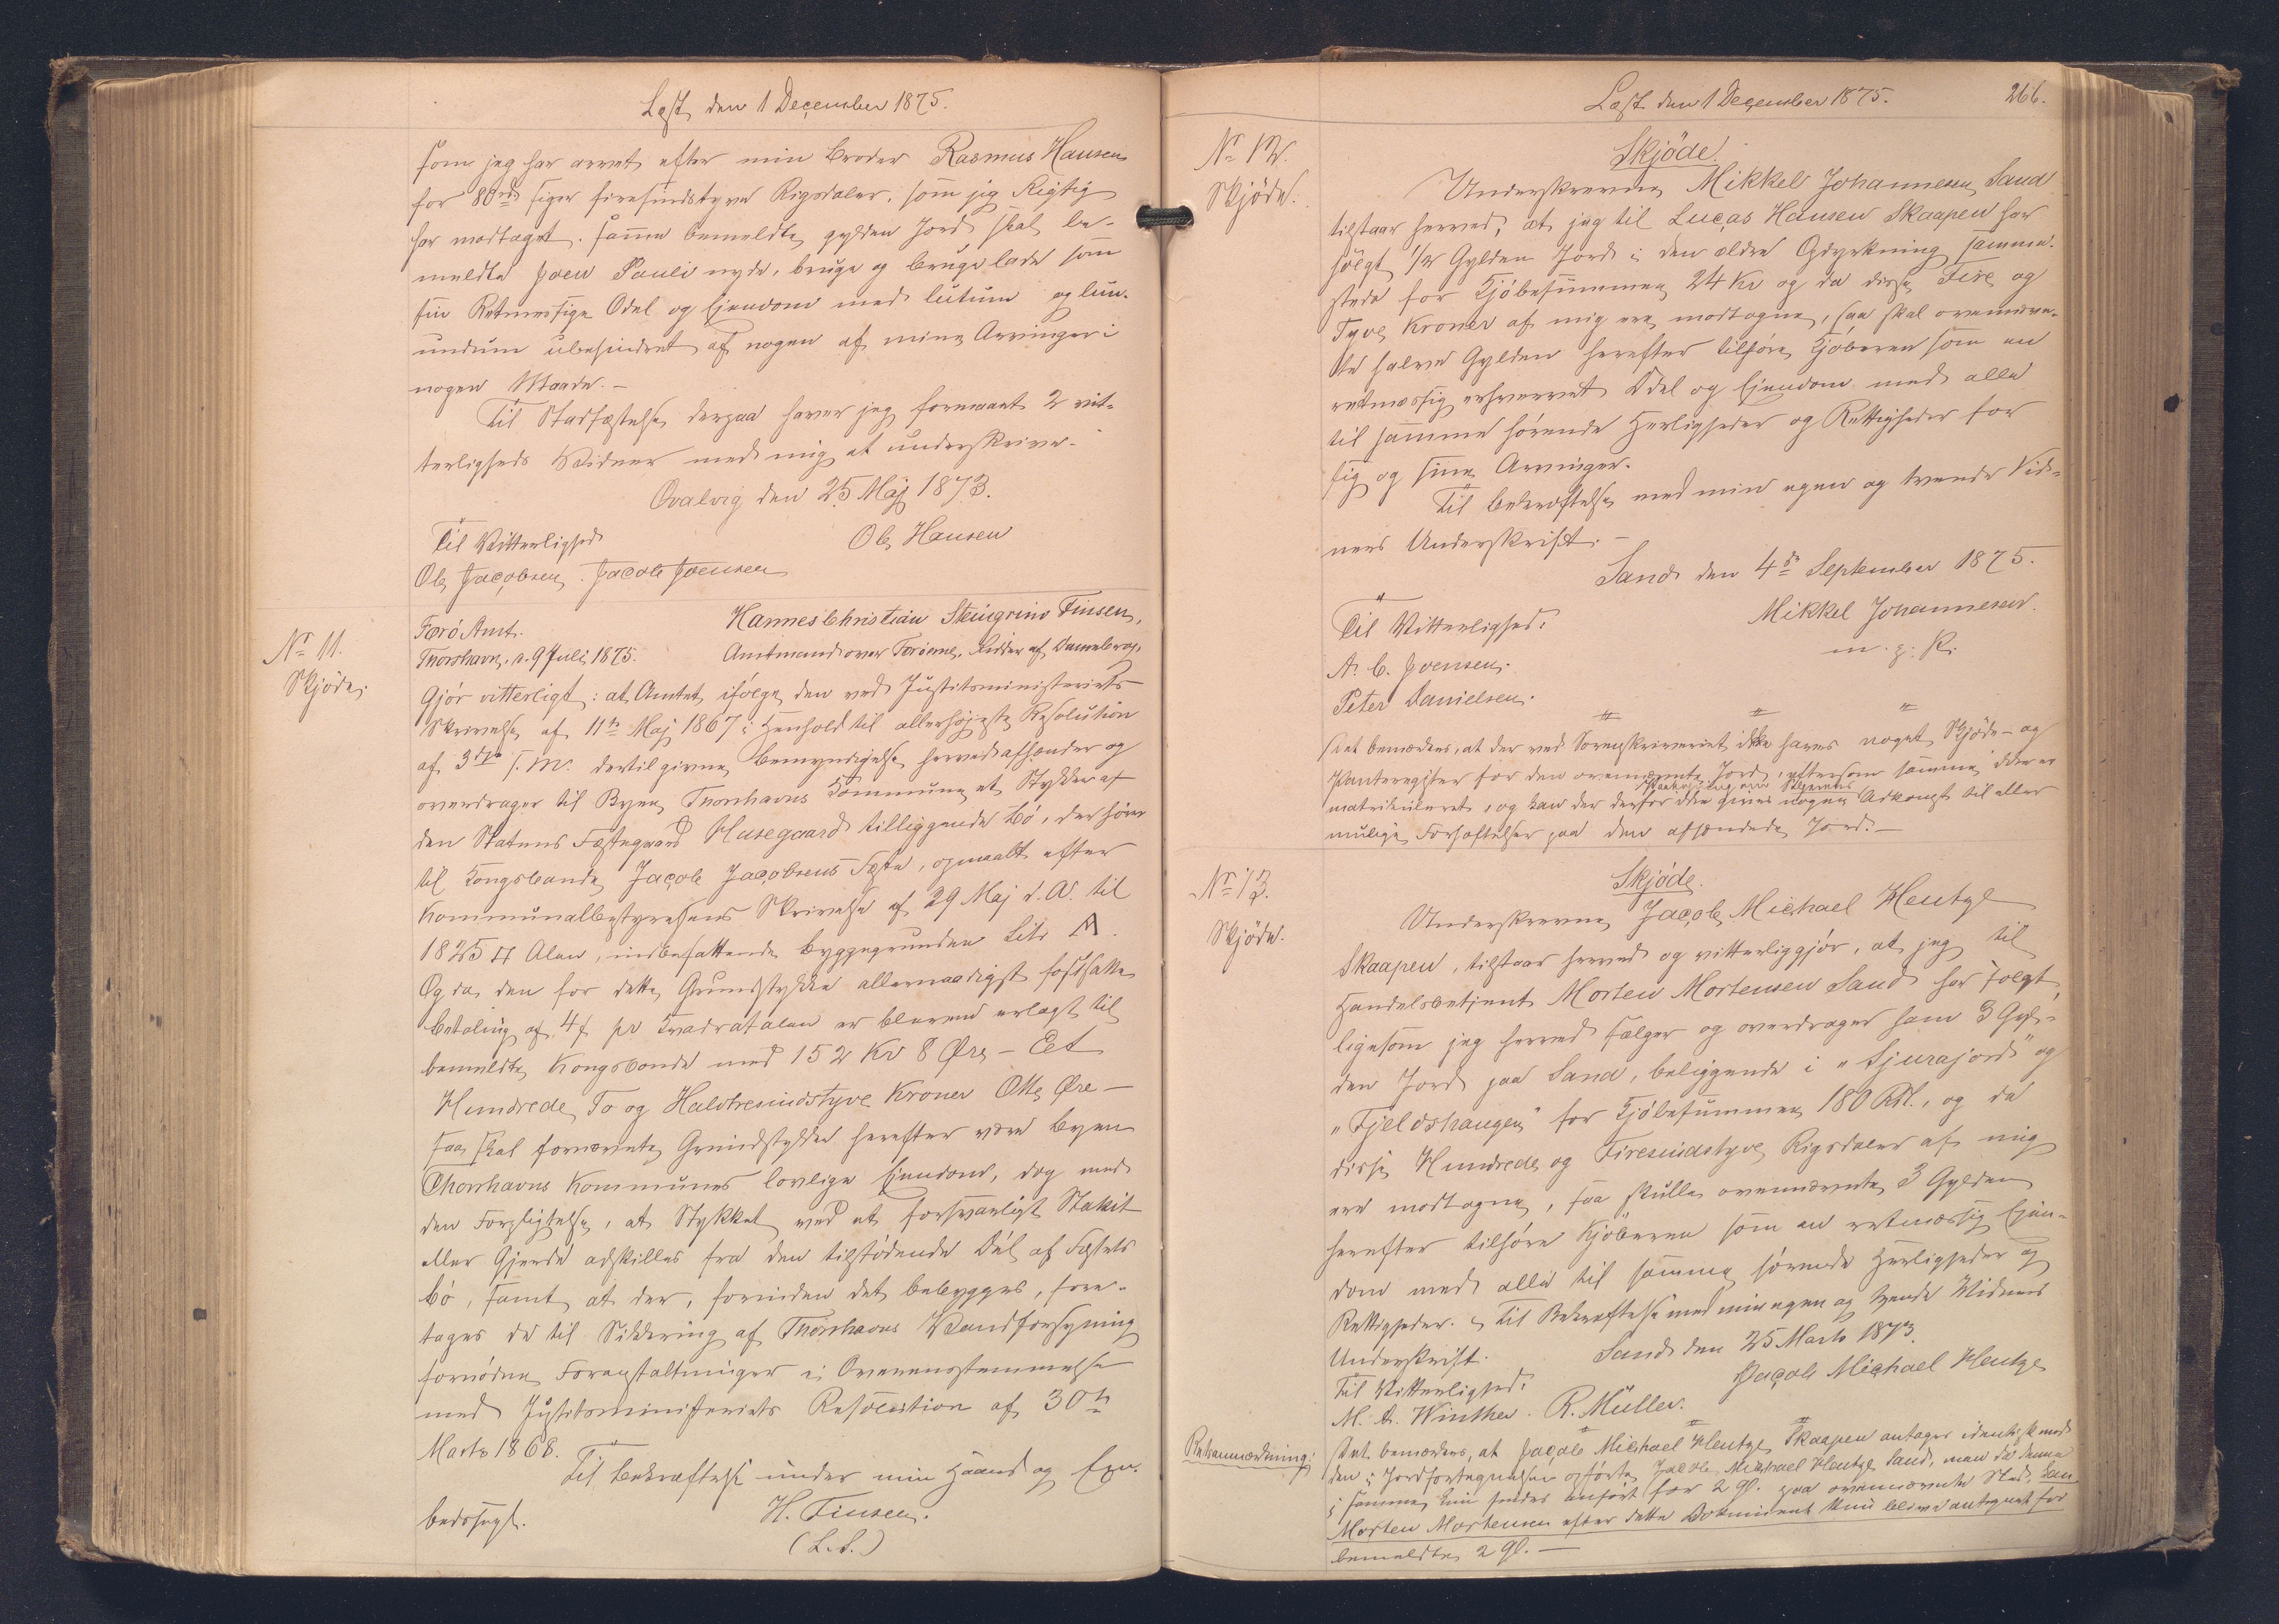 Læst den 1 December 1875.
som jeg har arvet efter min Broder Rasmus Hansen
for 80 rd siger firesindstyve Rigsdaler, som jeg Rigtig
har modtaget. samme bemeldte gylden Jord skal be-
meldte Joen Pauli nyde, bruge og bruge lade som
sin Retmessige Odel og Ejendom med lutum og lun-
undum ubehindret af nogen af mine Arvinger i
nogen Maade. –
Til Stadfæstelse derpaa haver jeg formaaet 2 vit-
terligheds Vidner med mig at underskrive. –
Qvalvig den 25 Maj 1873.
Til Vitterlighed Ole Hansen
Ole Jacobsen. Jacob Joensen
Nr 11.
Skjöde.
Færö Amt. Hannes Christian Steingrim Finsen,
Thorshavn, d. 9 Juli 1875. Amtmand over Færöerne, Ridder af Dannebrog,
Gjör vitterligt: at Amtet ifölge den ved Justitsministeriets
Skrivelse af 11te Maj 1867 i Henhold til allerhöjeste Resolution
af 3die s. M. dertil givne Bemyndigelse herved afhænder og
overdrager til Byen Thorshavns Kommune et Stykke af
den Statens Fæstegaard Husegaard tilliggende Bö, der hörer
til Kongsbonde Jacob Jacobsens Fæste, opmaalt efter
Kommunalbestyrelsens Skrivelse af 29 Maj d. A. til
1825 □ Alen, indbefattende Byggegrunden Litr A.
Og da den for dette Grundstykke allernaadigst fastsatte
Betaling af 4 s. pr Kvadratalen er bleven erlagt til
bemeldte Kongsbonde med 152 Kr 8 Öre – Et
Hundrede To og Halvtresindstyve Kroner Otte Öre –
saa skal fornævnte Grundstykke herefter være Byen
Thorshavns Kommunes lovlige Ejendom, dog med
den Forpligtelse, at Stykket ved et forsvarligt Stakit
eller Gjerde adskilles fra den tilstödende Del af Fæstets
Bö, samt at der, forinden det bebygges, fore-
tages de til Sikkring af Thorshavns Vandforsyning
fornödne Foranstaltninger i Overensstemmelse
med Justitsministeriets Resolution af 30te
Marts 1868.
Til Bekræftelse under min Haand og Em-
bedssegl. H. Finsen.
(L. S.)
Læst den 1 December 1875. 266.
Nr 12.
Skjöde.
Skjöde.
Underskrevne Mikkel Johannesen Sand
tilstaar herved, at jeg til Lucas Hansen Skaapen har
sölgt 1/2 Gylden Jord i den ældre Opdyrkning samme-
steds for Kjöbesummen 24 Kr og da disse Fire og
Tyve Kroner af mig ere modtagne, saa skal ovennævn-
te halve Gylden herefter tilhöre Kjöberen som en
retmæssig erhvervet Odel og Ejendom med alle
til samme hörende Herligheder og Rettigheder for
sig og sine Arvinger.
Til Bekræftelse med min egen og tvende Vid-
ners Underskrift. –
Sand den 4de September 1875.
Til Vitterlighed: Mikkel Johannesen.
A. C. Joensen. m. p. P.
Peter Danielsen.
Det bemærkes, at der ved Sorenskriveriet ikke haves noget Skjöde- og
Panteregister for den ovennævnte Jord, eftersom samme ikke er
matrikuleret, og kan der derfor ikke gives nogen Adkomst til eller
mulige Forhæftelser paa den afhændede Jord. –
Nr 13.
Skjöde.
Skjöde.
Underskrevne Jacob Michael Hentze
Skaapen, tilstaar herved og vitterliggjör, at jeg til
Handelsbetjent Morten Mortensen Sand har solgt,
ligesom jeg herved sælger og overdrager ham 3 Gyl-
den Jord paa Sand, beliggende i "Sjurajord" og
"Fjeldshaugen" for Kjöbesummen 180 Rdl., og da
disse Hundrede og Firesindstyve Rigsdaler af mig
ere modtagne, saa skulle ovennævnte 3 Gylden
herefter tilhöre Kjöberen som en retmæssig Ejen-
dom med alle til samme hörende Herligheder og
Rettigheder. Til Bekræftelse med min egen og tvende Vidners
Underskrift. Sand den 25 Marts 1873.
Til Vitterlighed: Jacob Michael Hentze
M. A. Winther. R. Müller.
Retsanmærkning:
Det bemærkes, at Jacob Michael Hentze Skaapen antages identisk med
den i Jordfortegnelsen opförte Jacob Michael Hentze Sand, men da denne
i samme kun findes anfört for 2 gl. paa ovennævnte Sted, kan
Morten Mortensen efter dette Dokument kun blive antegnet for
bemeldte 2 gl. –